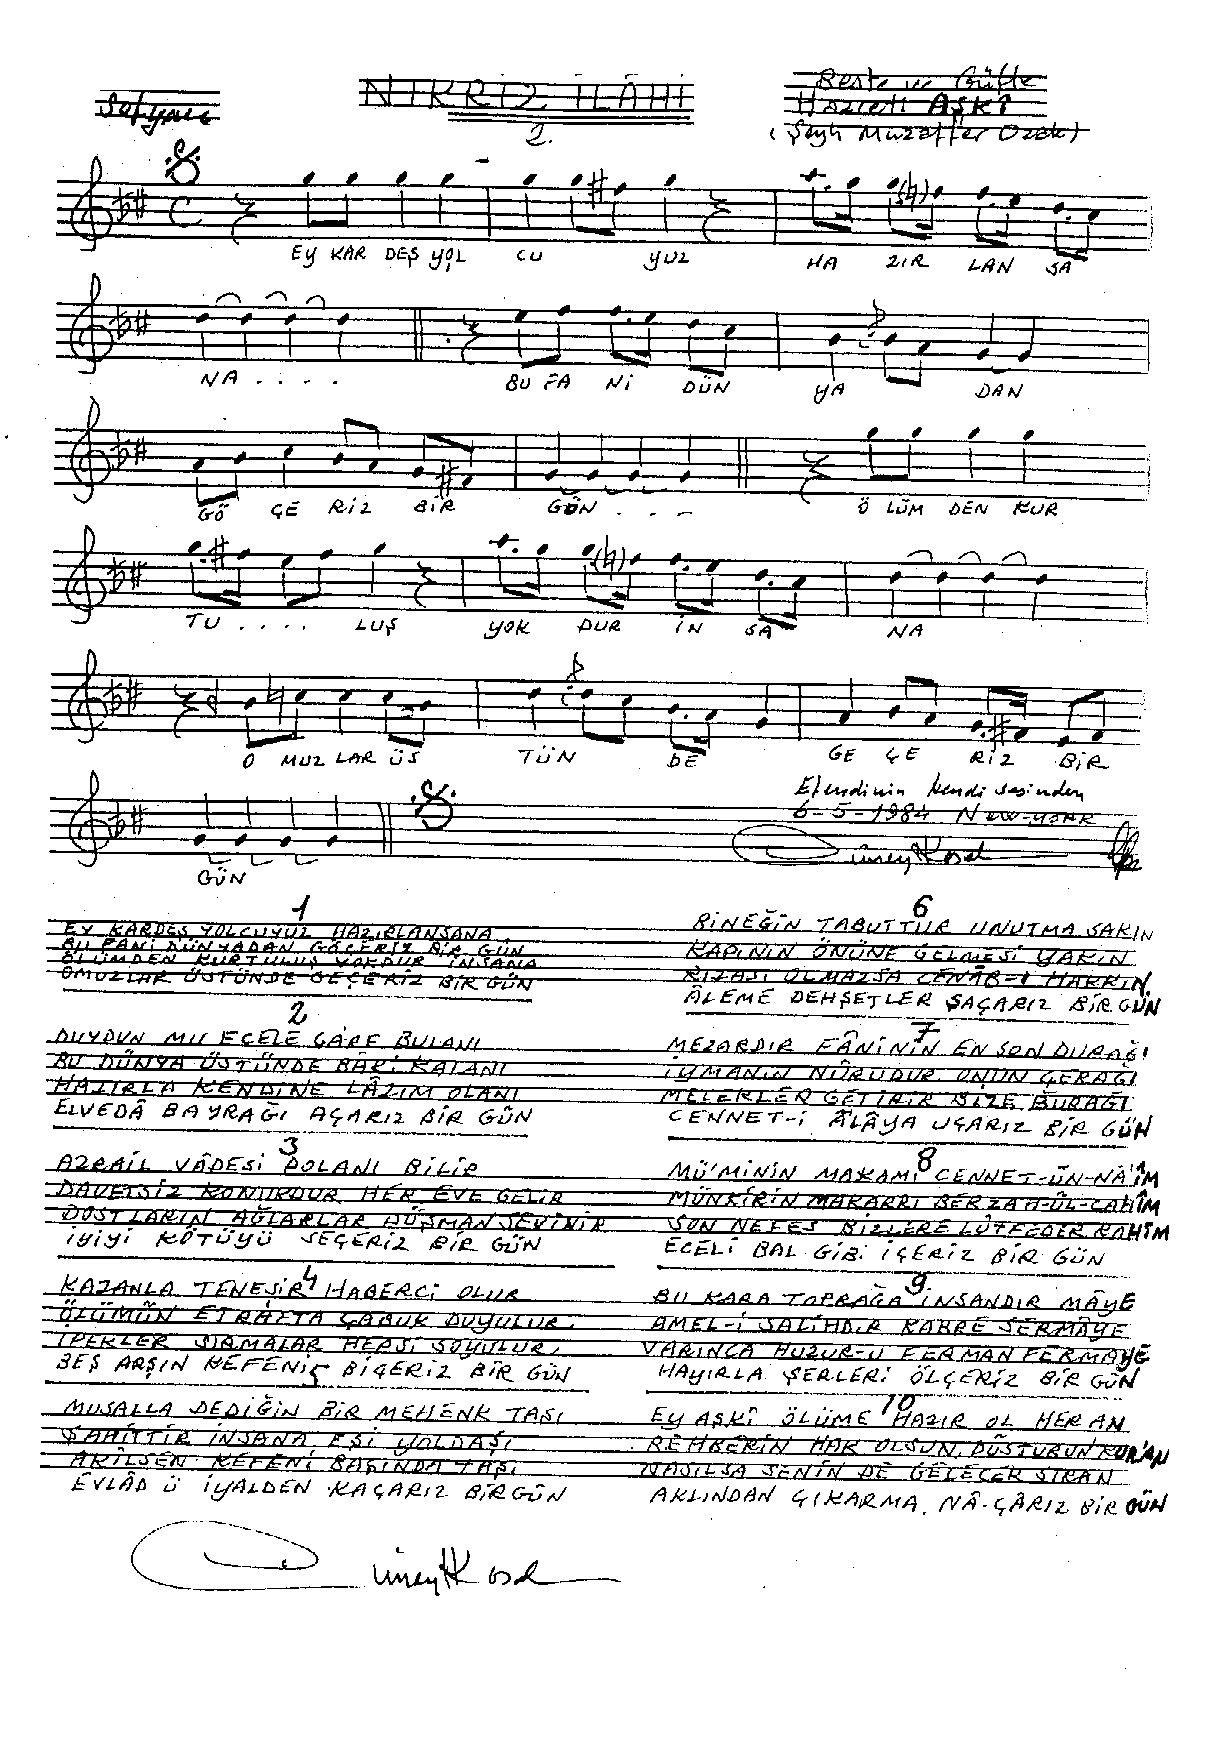 Sofyan
NİKRİZ İLÂHİ
2.
Beste ve Güfte
Hazreti AŞKÎ
(Şeyh Muzaffer Ozak)
EY KAR DEŞ YOL CU YUZ HA ZIR LAN SA
NA . . . . BU FA Nİ DÜN YA DAN
GÖ ÇE RİZ BİR GÜN . . . Ö LÜM DEN KUR
TU . . . . LUŞ YOK DUR İN SA NA
O MUZ LAR ÜS TÜN DE GE ÇE RİZ BİR
GÜN
Efendinin kendi sesinden
6-5-1984 New-york
Cüneyt Kosal
1
EY KARDEŞ YOLCUYUZ HAZIRLANSANA
BU FANİ DÜNYADAN GÖÇERİZ BİR GÜN
ÖLÜMDEN KURTULUŞ YOKDUR İNSANA
OMUZLAR ÜSTÜNDE GEÇERİZ BİR GÜN
2
DUYDUN MU ECELE ÇÂRE BULANI
BU DÜNYA ÜSTÜNDE BÂKİ KALANI
HAZIRLA KENDİNE LÂZIM OLANI
ELVEDÂ BAYRAĞI AÇARIZ BİR GÜN
3
AZRAİL VÂDESİ DOLANI BİLİR
DAVETSİZ KONUKDUR HER EVE GELİR
DOSTLARIN AĞLARLAR DÜŞMAN SEVİNİR
İYİYİ KÖTÜYÜ SEÇERİZ BİR GÜN
4
KAZANLA TENEŞİR HABERCİ OLUR
ÖLÜMÜN ETRAFTA ÇABUK DUYULUR
İPEKLER SIRMALAR HEPSİ SOYULUR
BEŞ ARŞIN KEFENİ BİÇERİZ BİR GÜN
5
MUSALLA DEDİĞİN BİR MEHENK TAŞI
ŞAHİTTİR İNSANA EŞİ YOLDAŞI
AKİLSEN KEFENİ BAŞINDA TAŞI
EVLÂD Ü İYALDEN KAÇARIZ BİR GÜN
6
BİNEĞİN TABUTTUR UNUTMA SAKIN
KAPININ ÖNÜNE GELMESİ YAKIN
RIZASI OLMAZSA CENÂB-I HAKKIN
ÂLEME DEHŞETLER SAÇARIZ BİR GÜN
7
MEZARDIR FÂNİNİN EN SON DURAĞI
İYMANIN NÛRUDUR ONUN ÇERAĞI
MELEKLER GETİRİR BİZE BURAĞI
CENNET-İ ÂLÂYA UÇARIZ BİR GÜN
8
MÜ'MİNİN MAKAMI CENNET-ÜN-NÂ'İM
MÜNKİRİN MAKARRI BERZAH-ÜL-CAHÎM
SON NEFES BİZLERE LÜTFEDER RAHÎM
ECELİ BAL GİBİ İÇERİZ BİR GÜN
9.
BU KARA TOPRAĞA İNSANDIR MÂYE
AMEL-İ SALİHDİR KABRE SERMÂYE
VARINCA HUZUR-U FERMAN FERMAYE
HAYIRLA ŞERLERİ ÖLÇERİZ BİR GÜN
10
EY AŞKÎ ÖLÜME HAZIR OL HER AN
REHBERİN HAK OLSUN, DÜSTURUN KUR'AN
NASILSA SENİN DE GELECEK SIRAN
AKLINDAN ÇIKARMA, NÂ-ÇÂRIZ BİR GÜN
Cüneyt Kosal